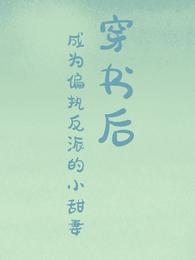 穿书后
成为偏执反派的小甜妻